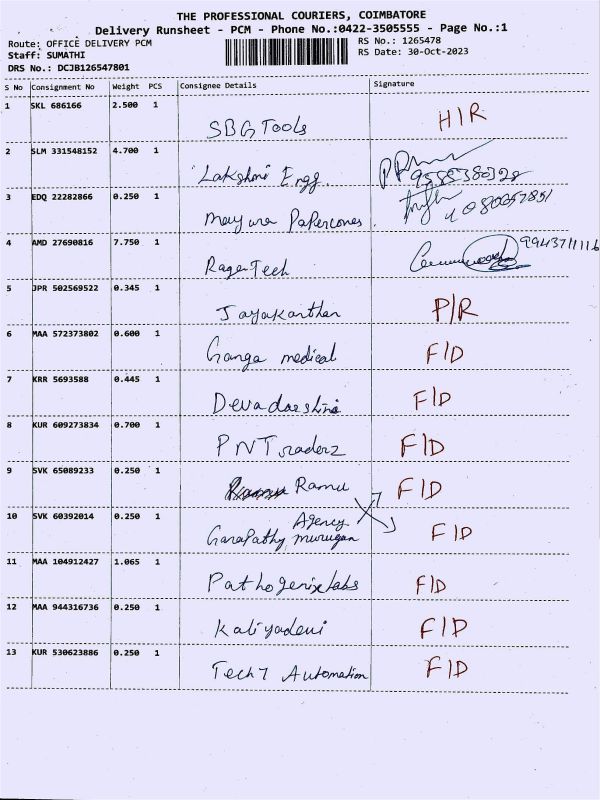 THE PROFESSIONAL COURIERS, COIMBATORE
Delivery Runsheet - PCM - Phone No.:0422-3505555 - Page No.:1
Route: OFFICE DELIVERY PCM
Staff: SUMATHI
DRS No.: DCJB126547801
RS No.: 1265478
RS Date: 30-Oct-2023
S No Consignment No Weight PCS Consignee Details Signature
1 SKL 686166 2.500 1
SBG Tools H/R
2 SLM 331548152 4.700 1
Lakshmi Engg.
3 EDQ 22282866 0.250 1
Mayura Papercones
4 AMD 27690816 7.750 1 9943711116
RagenTech
5 JPR 502569522 0.345 1
Jayakanthan P/R
6 MAA 572373802 0.600 1
Ganga medical F/D
7 KRR 5693588 0.445 1
Devadarshini F/D
8 KUR 609273834 0.700 1
PNTraderz F/D
9 SVK 65089233 0.250 1
Ramu F/D
10 SVK 60392014 0.250 1
Agency
Ganapathy murugan F/D
11 MAA 104912427 1.065 1
Pathogenixlabs F/D
12 MAA 944316736 0.250 1
Kaliyadevi F/D
13 KUR 530623886 0.250 1
Tech7 Automation F/D